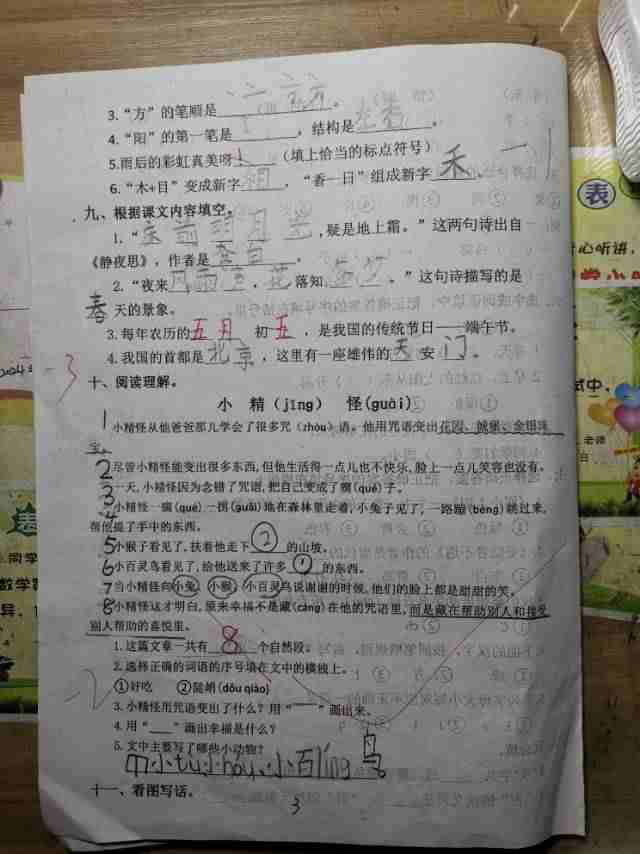 3.“方”的笔顺是
4.“阳”的第一笔是 ，结构是 左右 。
5.雨后的彩虹真美呀！（填上恰当的标点符号）
6.“木+目”变成新字 相 ，“香一日”组成新字 禾 。
九、根据课文内容填空。
1.“床前明月光，疑是地上霜。”这两句诗出自
《静夜思》，作者是 李白
2.“夜来风雨声，花落知多少。”这句诗描写的是
春天的景象。
3.每年农历的五月初五，是我国的传统节日——端午节。
4.我国的首都是北京，这里有一座雄伟的天安门。
-3
十、阅读理解。
小 精（jīng） 怪(guài)
1 小精怪从他爸爸那儿学会了很多咒（zhòu）语。他用咒语变出花园、城堡、金银珠
宝。
2 尽管小精怪能变出很多东西,但他生活得一点儿也不快乐,脸上一点儿笑容也没有。
3 一天,小精怪因为念错了咒语,把自己变成了瘸(qué)子。
4 小精怪一瘸(qué)一拐(guǎi)地在森林里走着,小兔子见了,一路蹦(bèng)跳过来,
帮他提了手中的东西。
5 小猴子看见了,扶着他走下 ② 的山坡。
6 小百灵鸟看见了,给他送来了许多 ① 的东西。
7 当小精怪向小兔、小猴、小百灵鸟说谢谢的时候,他们的脸上都是甜甜的笑。
8 小精怪这才明白,原来幸福不是藏(cáng)在他的咒语里,而是藏在帮助别人和接受
别人帮助的喜悦里。
1.这篇文章一共有 8 个自然段。
2.选择正确的词语的序号填在文中的横线上。
-2
①好吃 ②陡峭(dǒu qiào)
3.小精怪用咒语变出了什么？用“——”画出来。
4.用“﹏”画出幸福是什么？
5.文中主要写了哪些小动物？
小tù、小hóu、小百líng鸟
十一、看图写话。
3